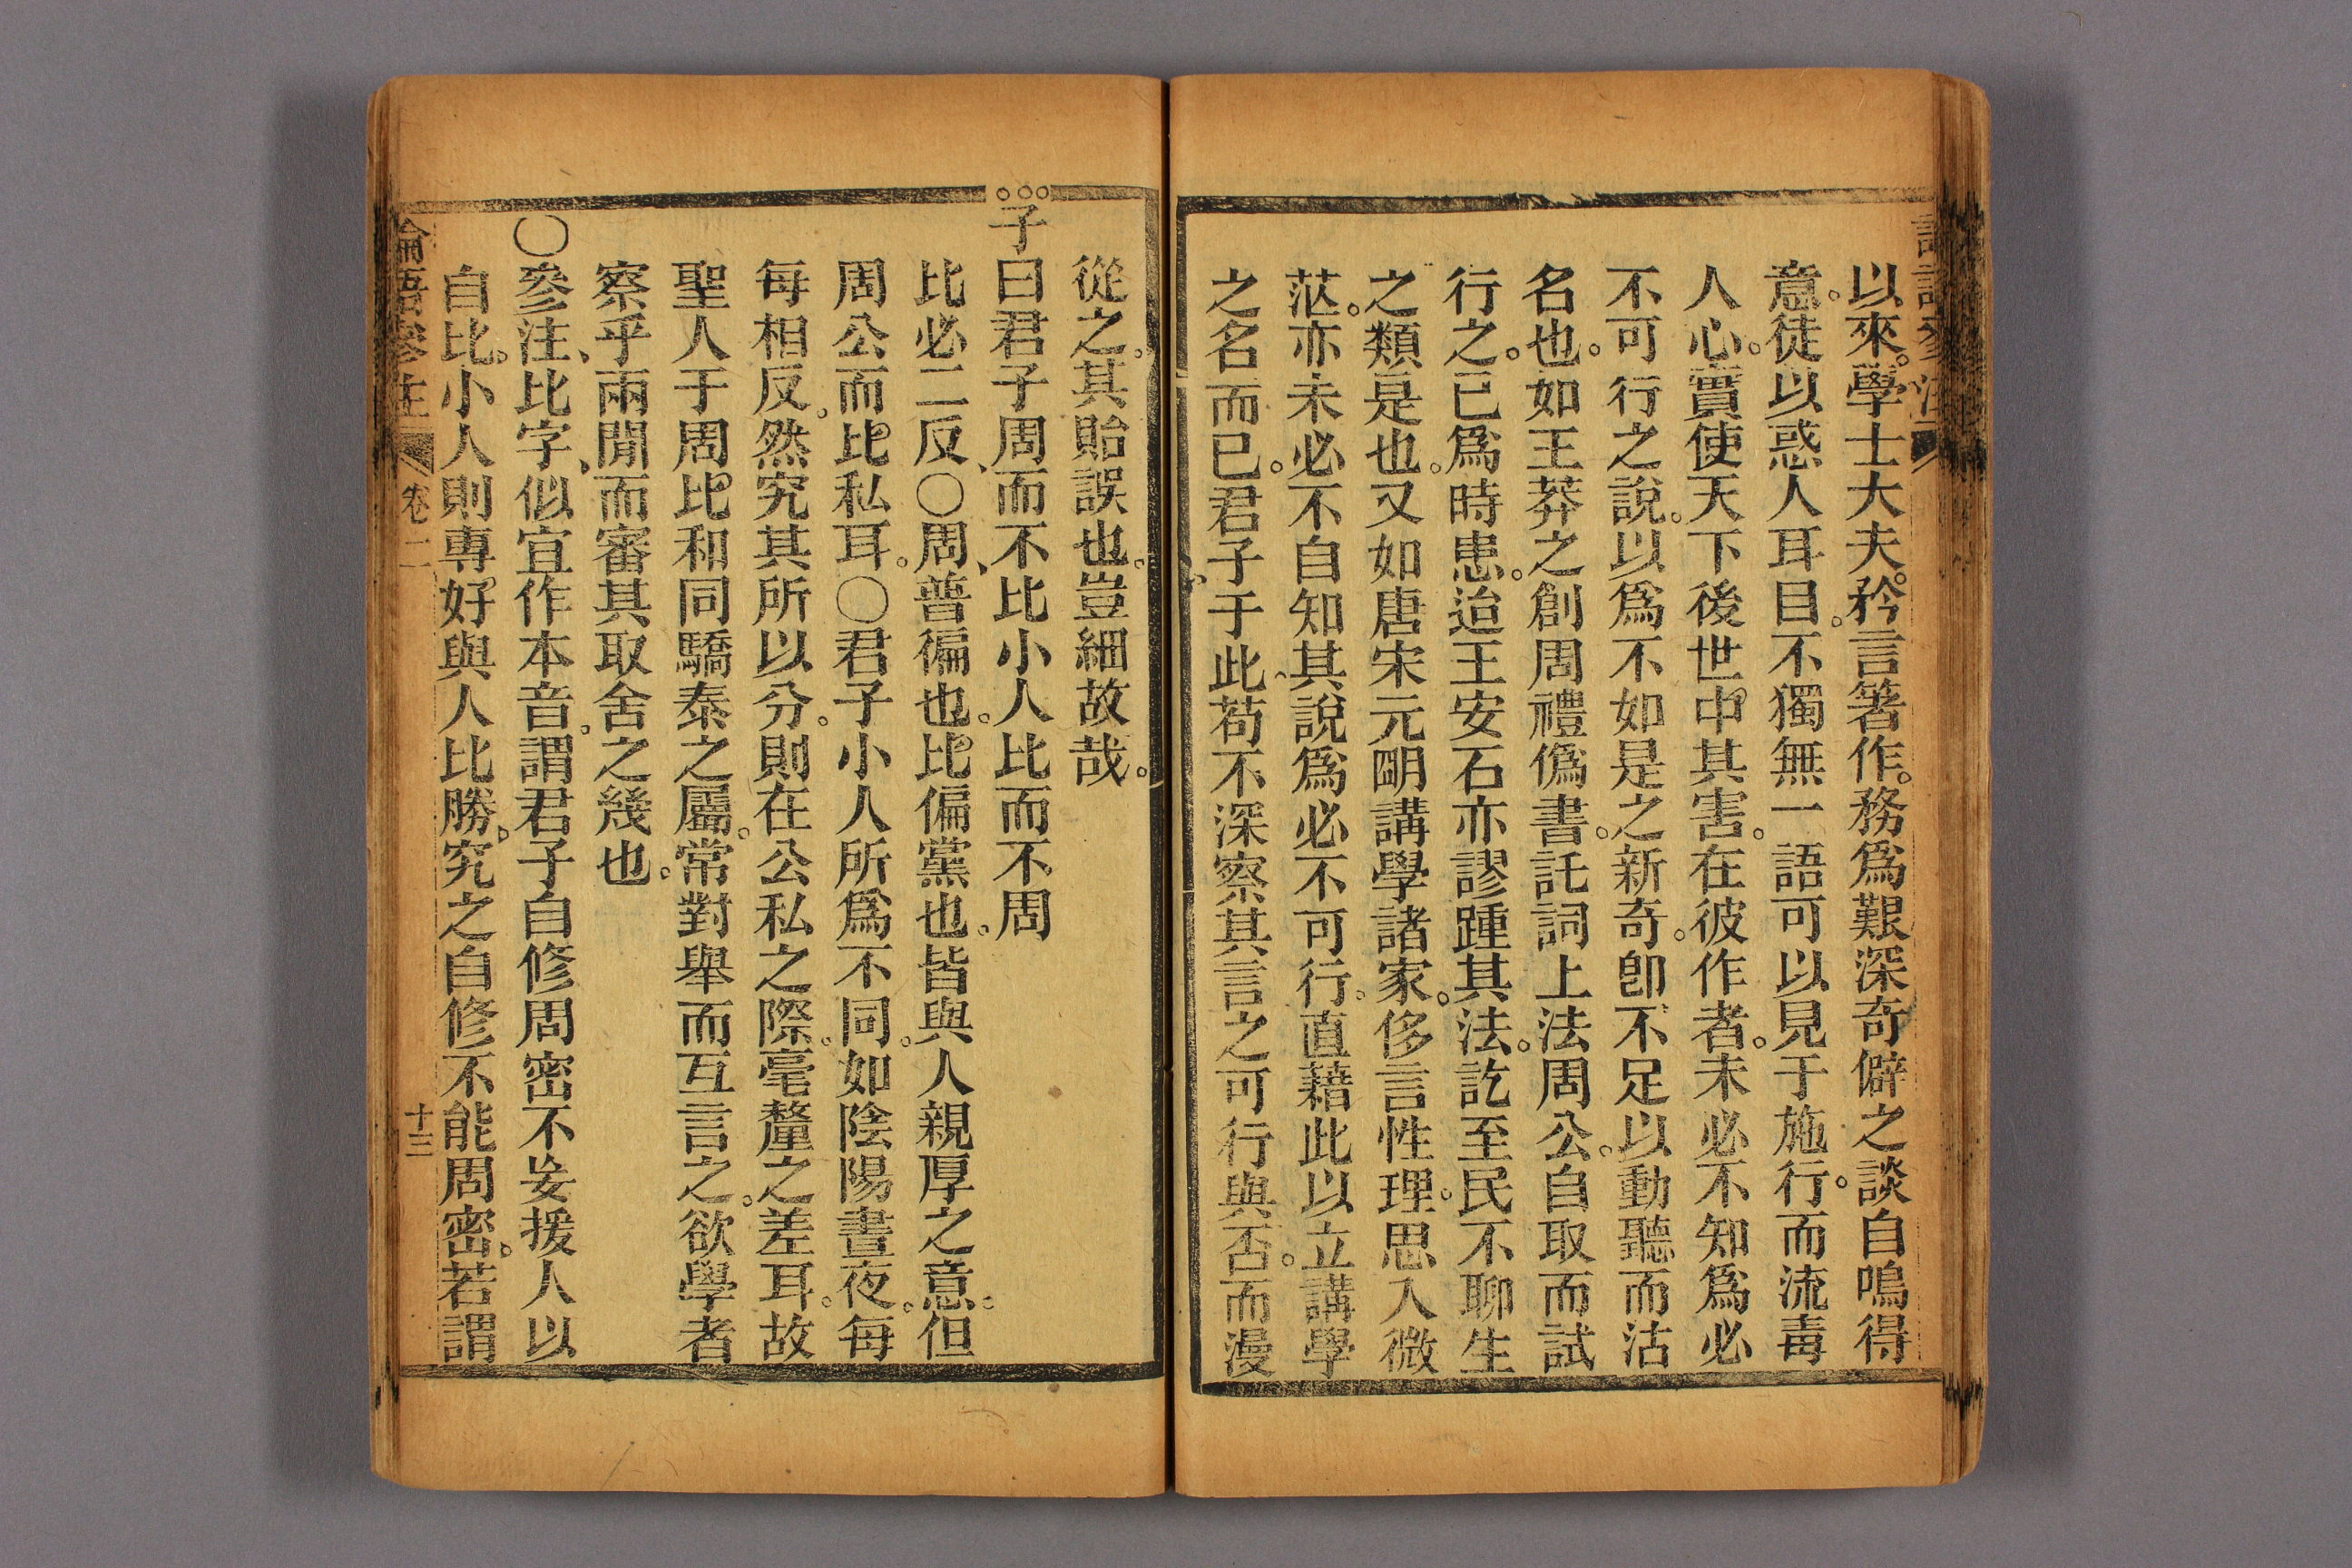 以來。學士大夫。矜言著作。務爲艱深奇僻之談自鳴得
意。徒以惑人耳目。不獨無一語可以見于施行。而流毒
人心。實使天下後世中其害。在彼作者。未必不知爲必
不可行之說。以爲不如是之新奇。卽不足以動聽而沽
名也。如王莽之創周禮僞書。託詞上法周公。自取而試
行之。已爲時患。迨王安石亦謬踵其法。訖至民不聊生
之類是也。又如唐宋元明講學諸家。侈言性理。思入微
茫。亦未必不自知其說爲必不可行。直藉此以立講學
之名而已。君子于此苟不深察其言之可行與否。而漫
從之。其貽誤也。豈細故哉。
子曰君子周而不比小人比而不周
比必二反、〇周、普徧也。比偏黨也。皆與人親厚之意。但
周公而比私耳。〇君子小人所爲不同。如陰陽晝夜。每
每相反。然究其所以分。則在公私之際。毫釐之差耳。故
聖人于周比和同驕泰之屬。常對舉而互言之。欲學者
察乎兩閒而審其取舍之幾也。
〇參注、比字、似宜作本音。謂君子自修周密不妄援人以
自比。小人則專好與人比勝。究之自修不能周密。若謂
論語參注
卷二
十三